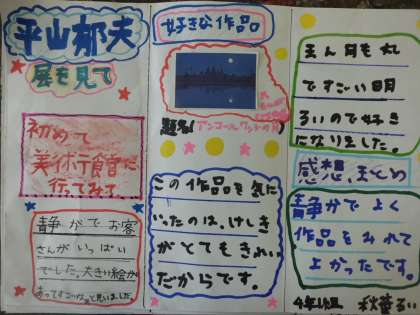 平山郁夫
展を見て
初めて
美術館に
行ってみて
静かでお客
さんがいっぱい
でした。大きい絵が
あってすごいなぁと思いました。
好きな作品
題名(アンコールワットの月)
この作品を気に
いったのは、けしき
がとてもきれい
だからです。
まん月も丸
ですごい明
るいので好き
になりました。
感想、まとめ
静かでよく
作品をみれて
よかったです。
4年1組